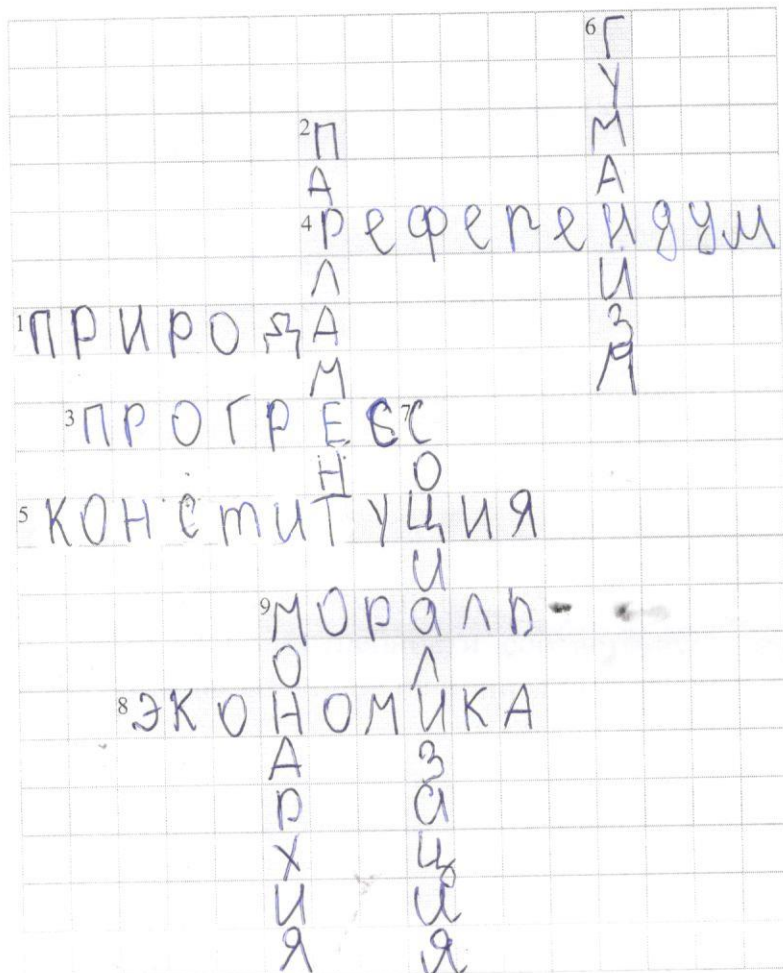 6 ГУМАНИЗМ
2 ПАРЛАМЕНТ
4 Референдум
1 ПРИРОДА
3 ПРОГРЕСС
7 СОЦИАЛИЗАЦИЯ
5 КОНСТИТУЦИЯ
9 МОРАЛЬ
МОНАРХИЯ
8 ЭКОНОМИКА